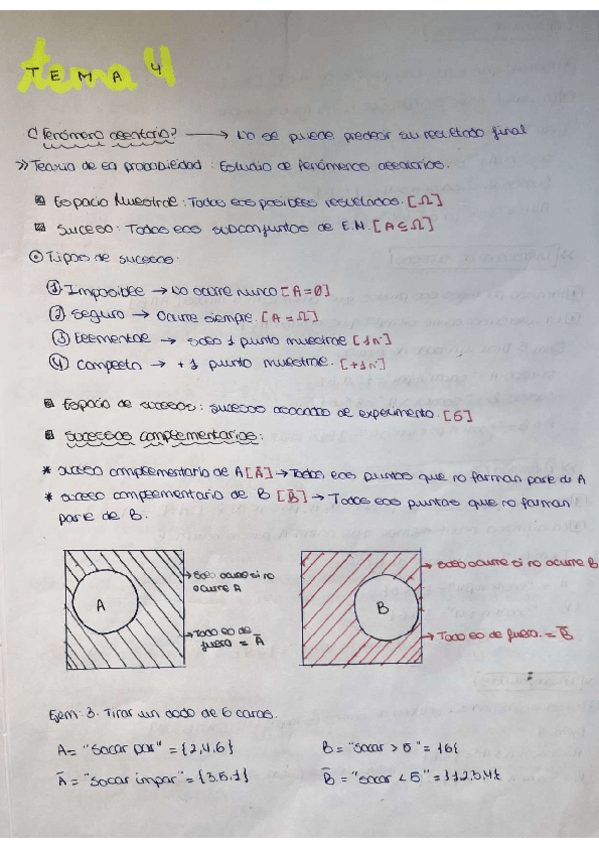 tema 4
TEMA 4
¿Fenómeno aleatorio? → No se puede predecir su resultado final
>> Teoría de la probabilidad: Estudio de fenómenos aleatorios.
Espacio Muestral: Todos los posibles resultados. [Ω]
Suceso: Todos los subconjuntos de E.M. [A⊆Ω]
Tipos de sucesos:
① Imposible → No ocurre nunca [A=∅]
② Seguro → Ocurre siempre. [A=Ω]
③ Elemental → Sólo 1 punto muestral [1n']
④ Completo → +1 punto muestral. [+1n']
Espacio de sucesos: sucesos asociados de experimento. [S]
Sucesos complementarios:
* suceso complementario de A [Ā] → Todos los puntos que no forman parte de A
* suceso complementario de B [B̄] → Todos los puntos que no forman
parte de B.
A
→ Sólo ocurre si no
ocurre A
→ Todo lo de
fuera = Ā
B
→ Sólo ocurre si no ocurre B
→ Todo lo de fuera = B̄
Ejm: 3. Tirar un dado de 6 caras.
A = "Sacar par" = {2,4,6}
B = "sacar > 5" = {6}
Ā = "Sacar impar" = {3,5,1}
B̄ = "sacar < 5" = {1,2,3,4}